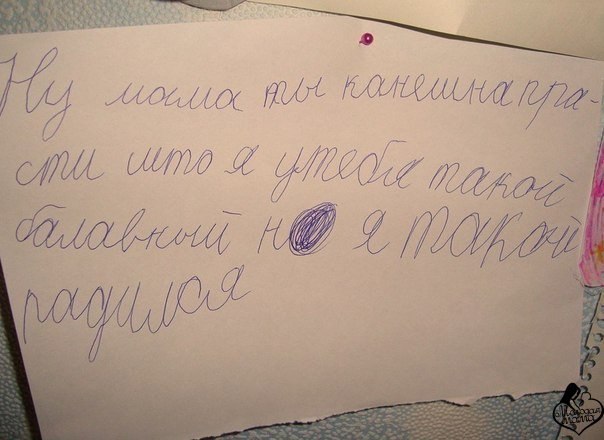 Ну мама ты канешна пра-
сти што я утебя такой
балавный но я такой
радился
Молодая
мама